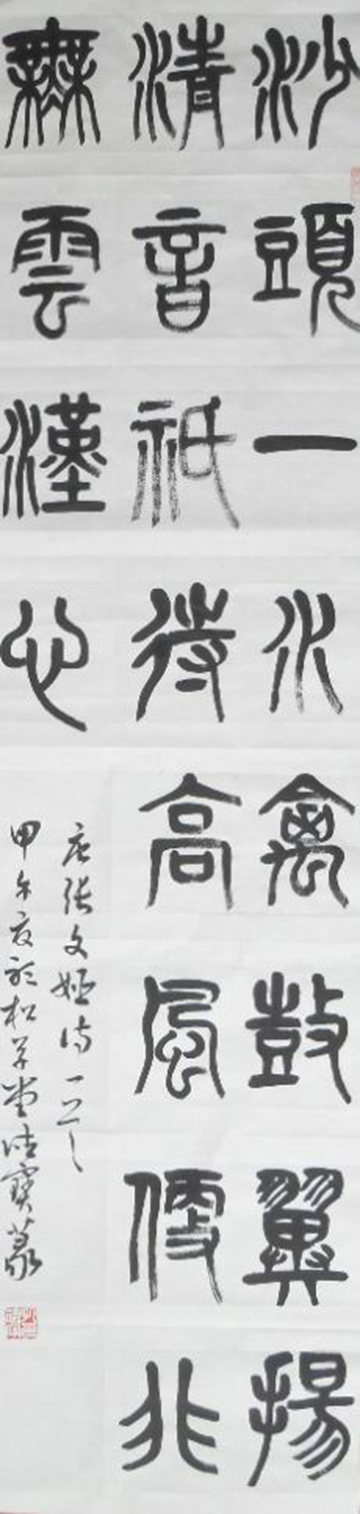 沙頭一水禽鼓翼揚
清音祇待高風便非
無雲漢心
唐張文姬詩一首
甲午夏於松堂寶篆